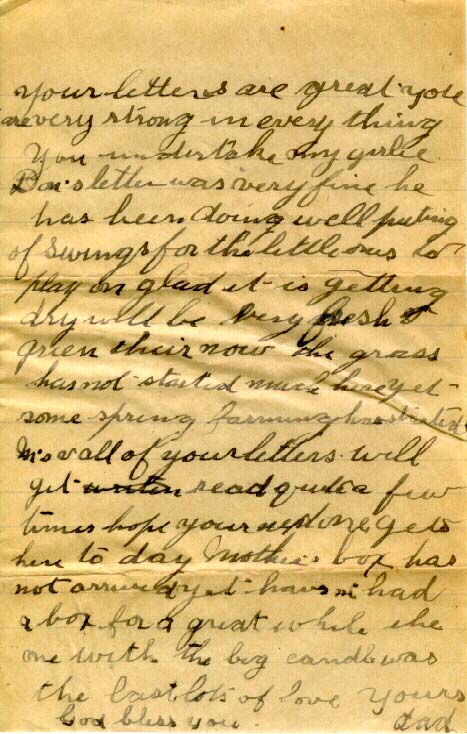 your letters are great you
are very strong in every thing
you undertake my girlie
letter was very fine he
has been doing well puting
of swings for the little ons to
play on glad it is getting
dry will be very fresh &
grien their now the grass
has not started much here yet
some spring farming has started
all of your letters will
get written read quite a few
times hope your next one gets
here to day Mother's box has
not arrived yet havent had
a box for a great while the
one with the big candle was
the last lots of love yours
God bless you. dad